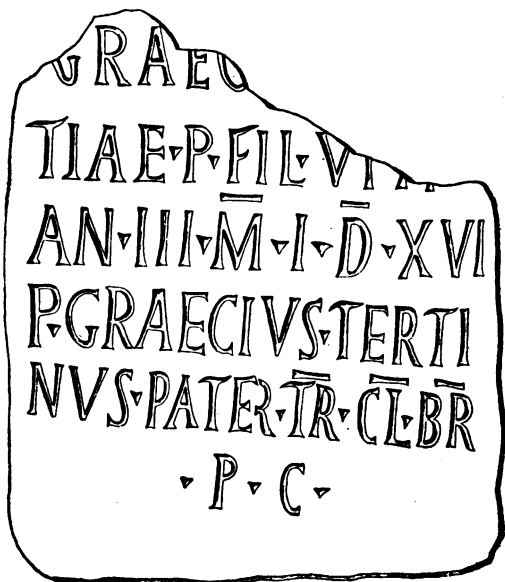 GRAEC
TIAE·P·FIL·VIXI
AN·III·M̅·I·D̅·XVI
P·GRAECIVS·TERTI
NVS·PATER·T̅R̅·C̅L̅·B̅R̅
·P·C·